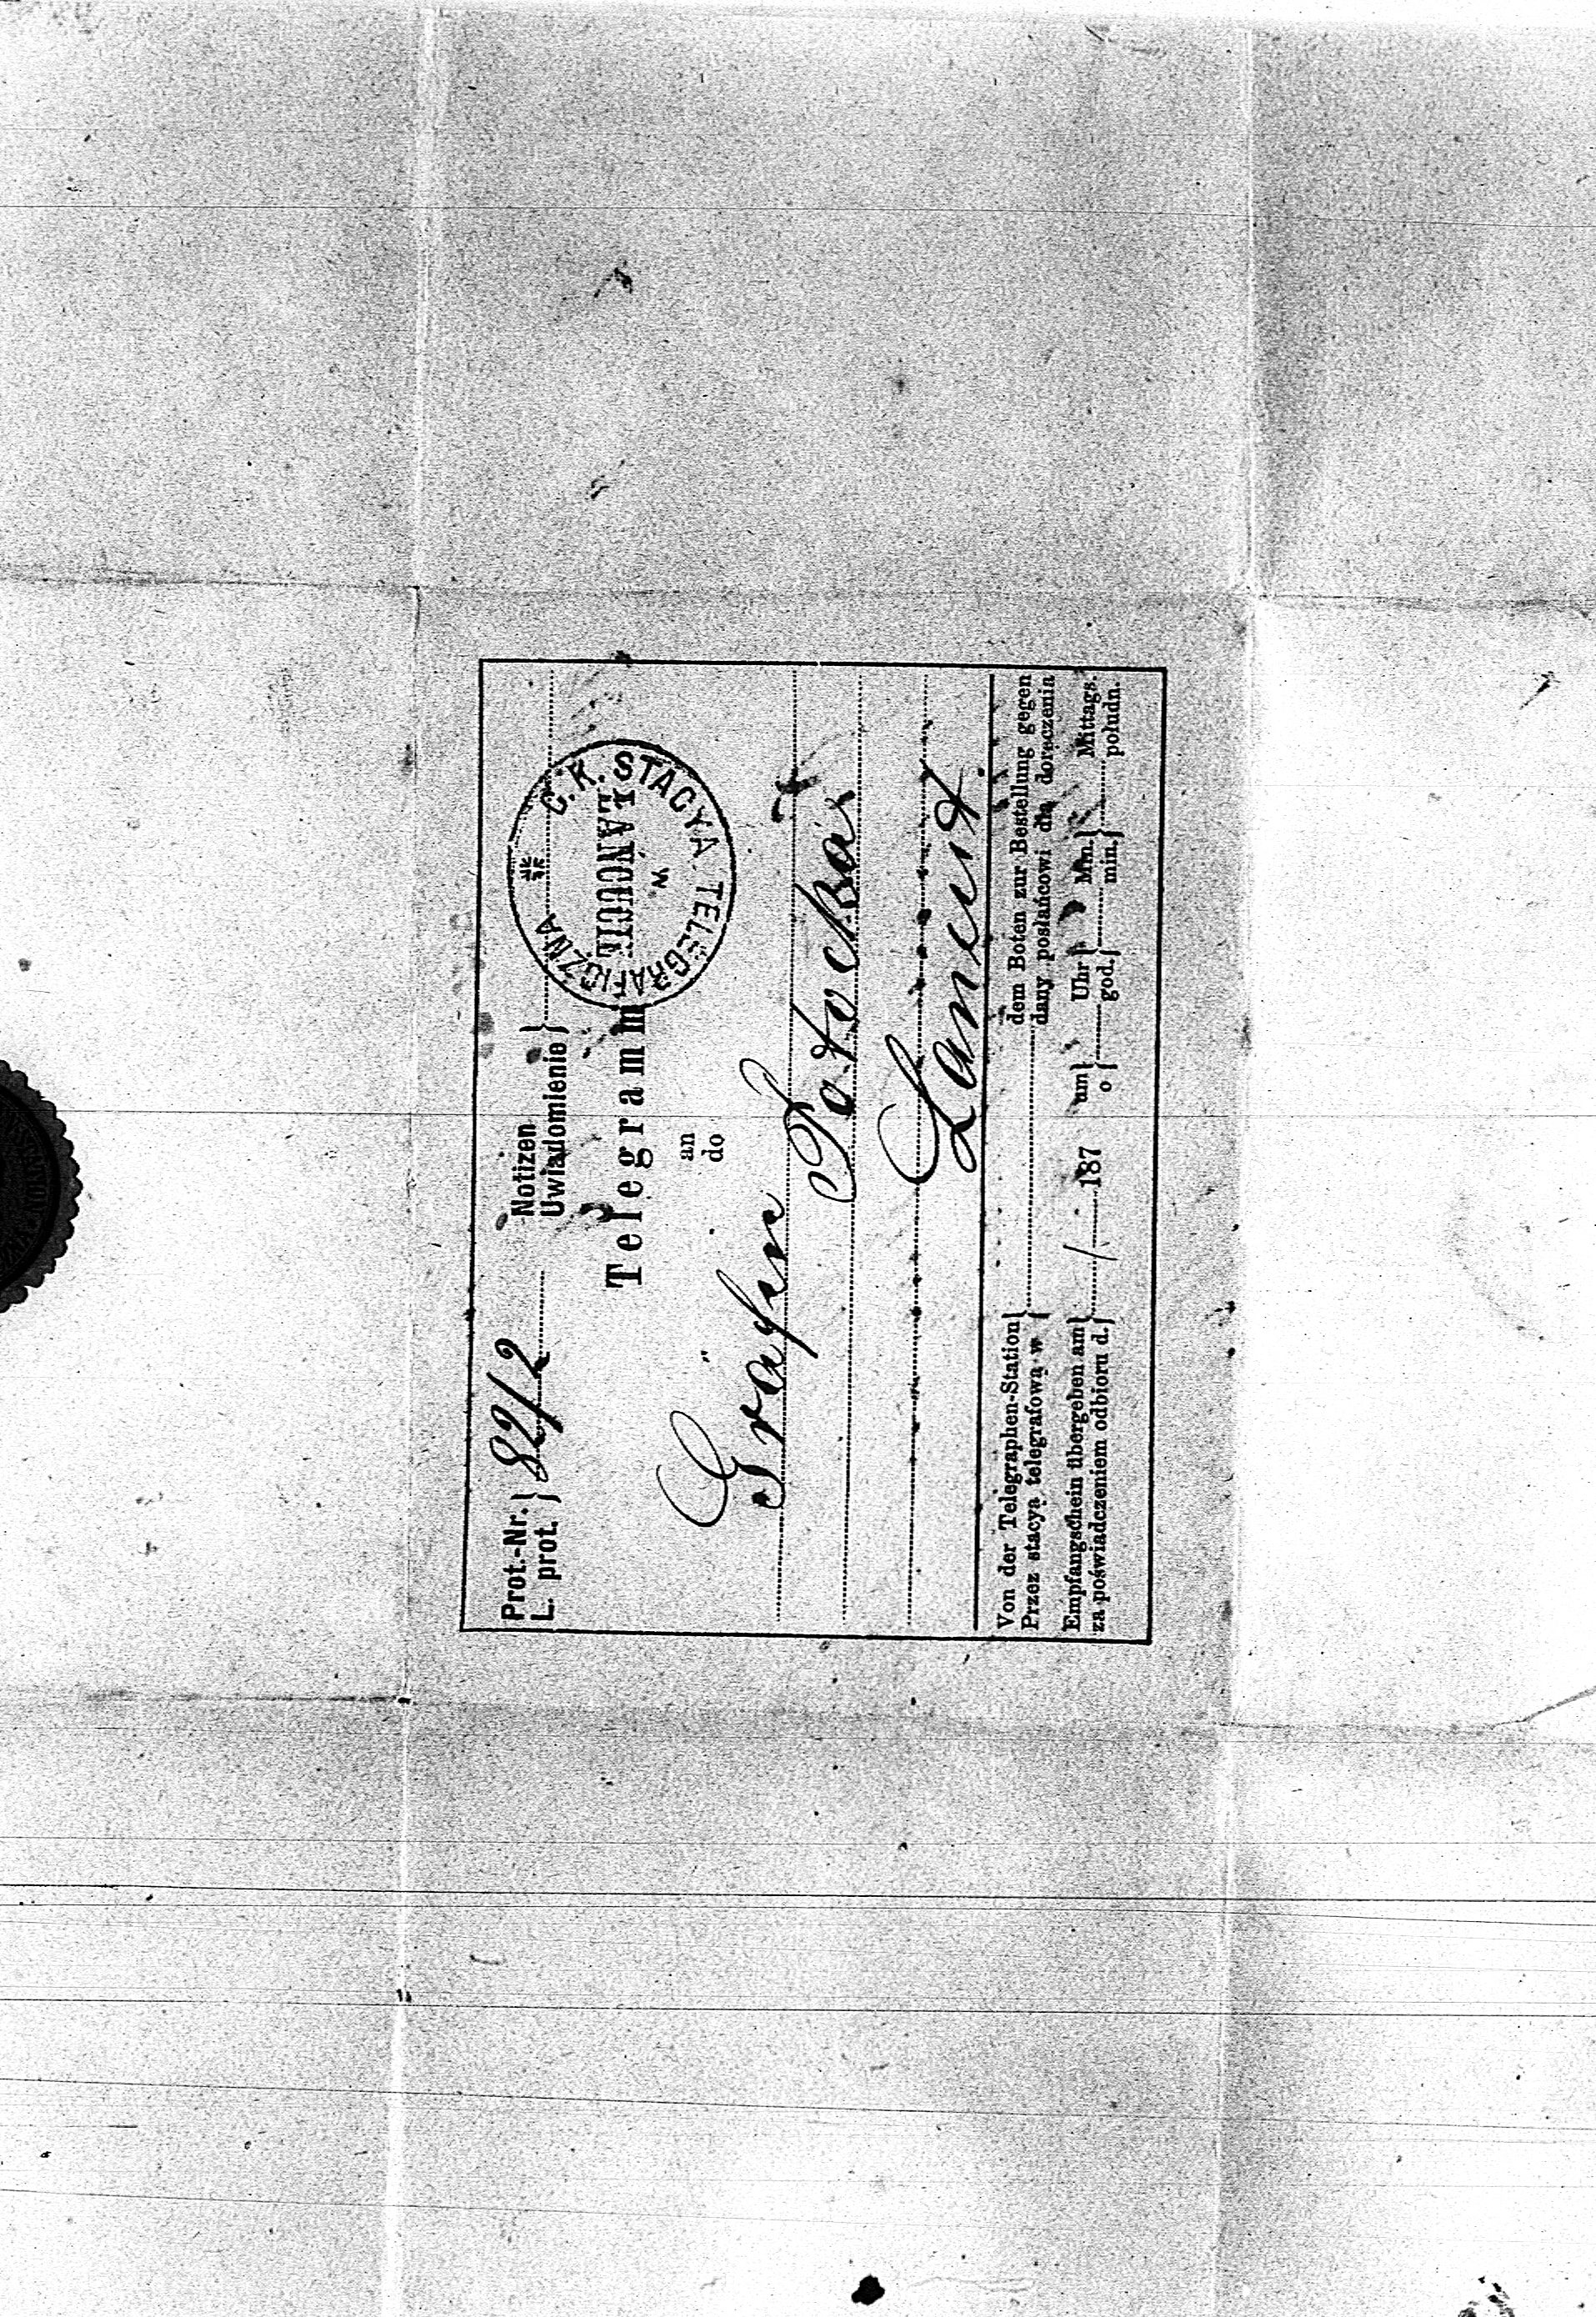 Prot.-Nr. } 82/2 Notizen }
L. prot. } Uwiadomienie }
C. K. STACYA TELEGRAFICZNA
w
ŁAŃCUCIE
Telegramm
an
do
Gräfin
Potocka
Lancut
Von der Telegraphen-Station } dem Boten zur Bestellung gegen
Przez stacyą telegrafową w } dany posłańcowi dla doręczenia
Empfangschein übergeben am } / 187 um } Uhr } Min. } Mittags.
za poświadczeniem odbioru d. } o } god. } min. } południ.